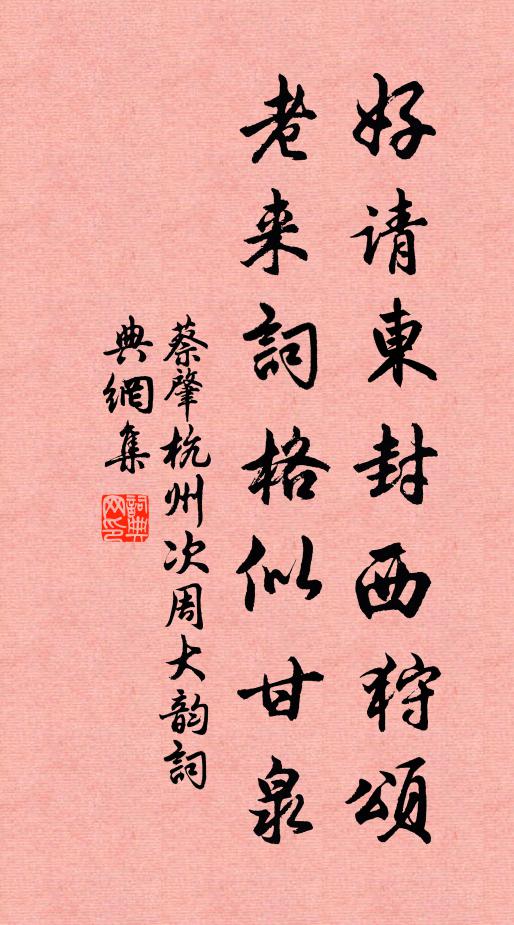 好请東封西狩頌
老来詞格似甘泉
蔡肇杭州次周大韵詞
典網集
詞典网印